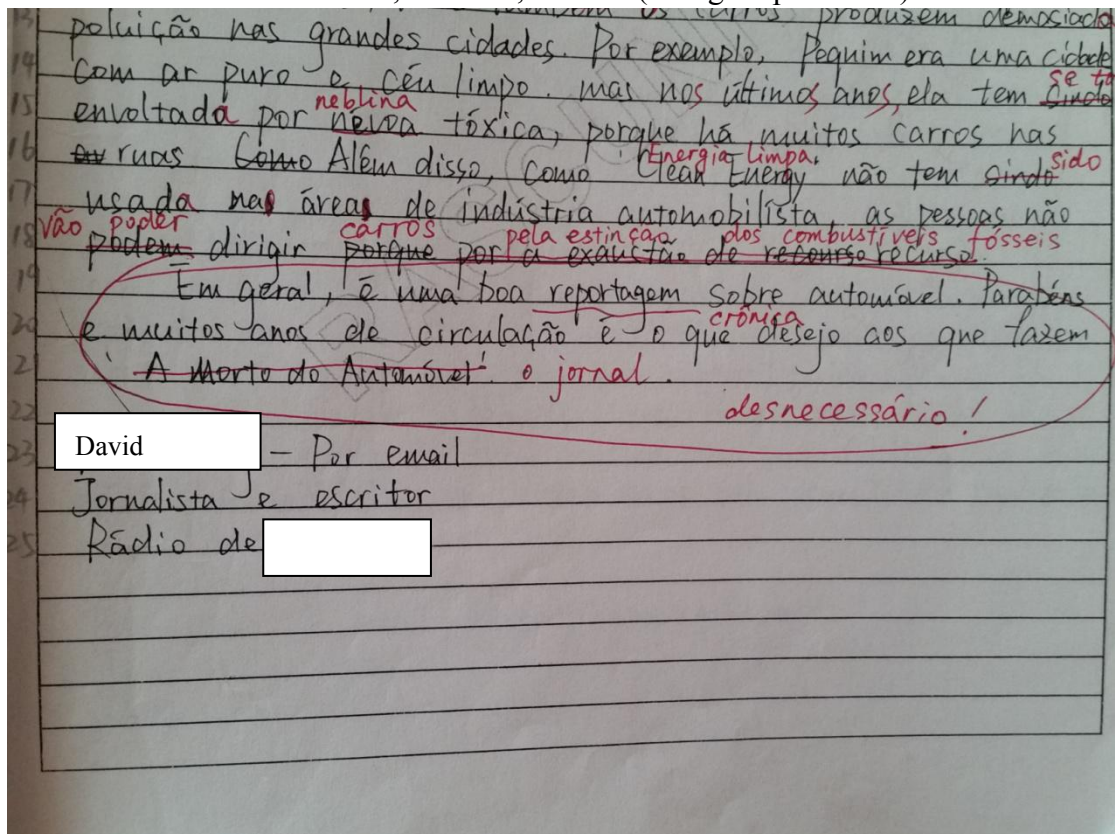 os carros produzem demasiada
poluição nas grandes cidades. Por exemplo, Pequim era uma cidade
14 com ar puro e céu limpo. mas nos últimos anos, ela tem sindo se
15 envoltada por nevoa neblina tóxica, porque há muitos carros nas
16 ruas Como Além disso, como Clean Energy Energia Limpa, não tem sindo sido
17 usada nas áreas de indústria automobilista as pessoas não
18 podem vão poder dirigir porque carros por a exaustão de recurso pela estinção dos combustíveis fósseis
19 Em geral, é uma boa reportagem sobre automóvel. Parabéns
20 e muitos anos de circulação é o que desejo aos que fazem
crônica
21 'A Morto do Automóvel'. o jornal.
22 desnecessário!
23 David - Por email
24 Jornalista e escritor
25 Rádio de